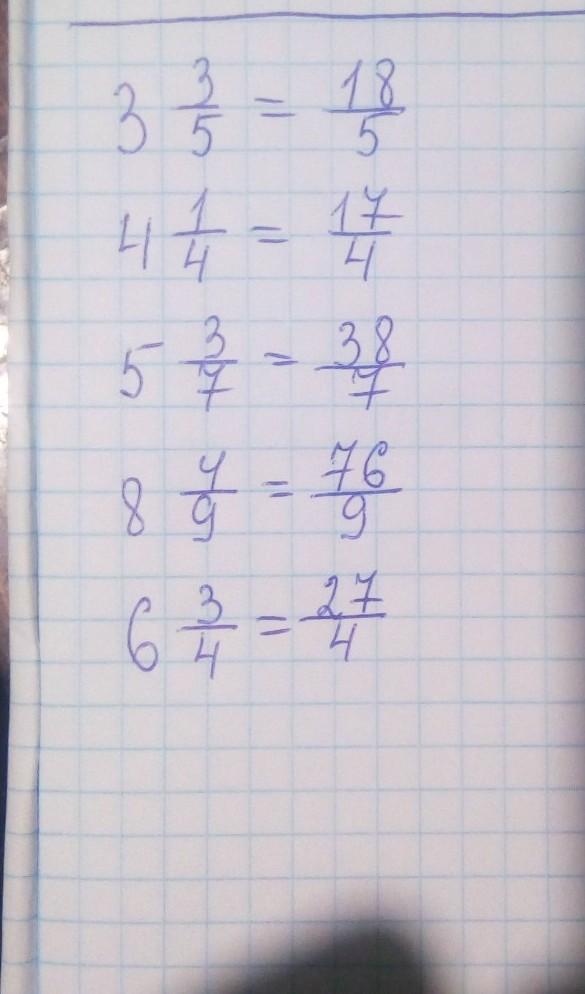 3 3/5 = 18/5
4 1/4 = 17/4
5 3/7 = 38/7
8 4/9 = 76/9
6 3/4 = 27/4